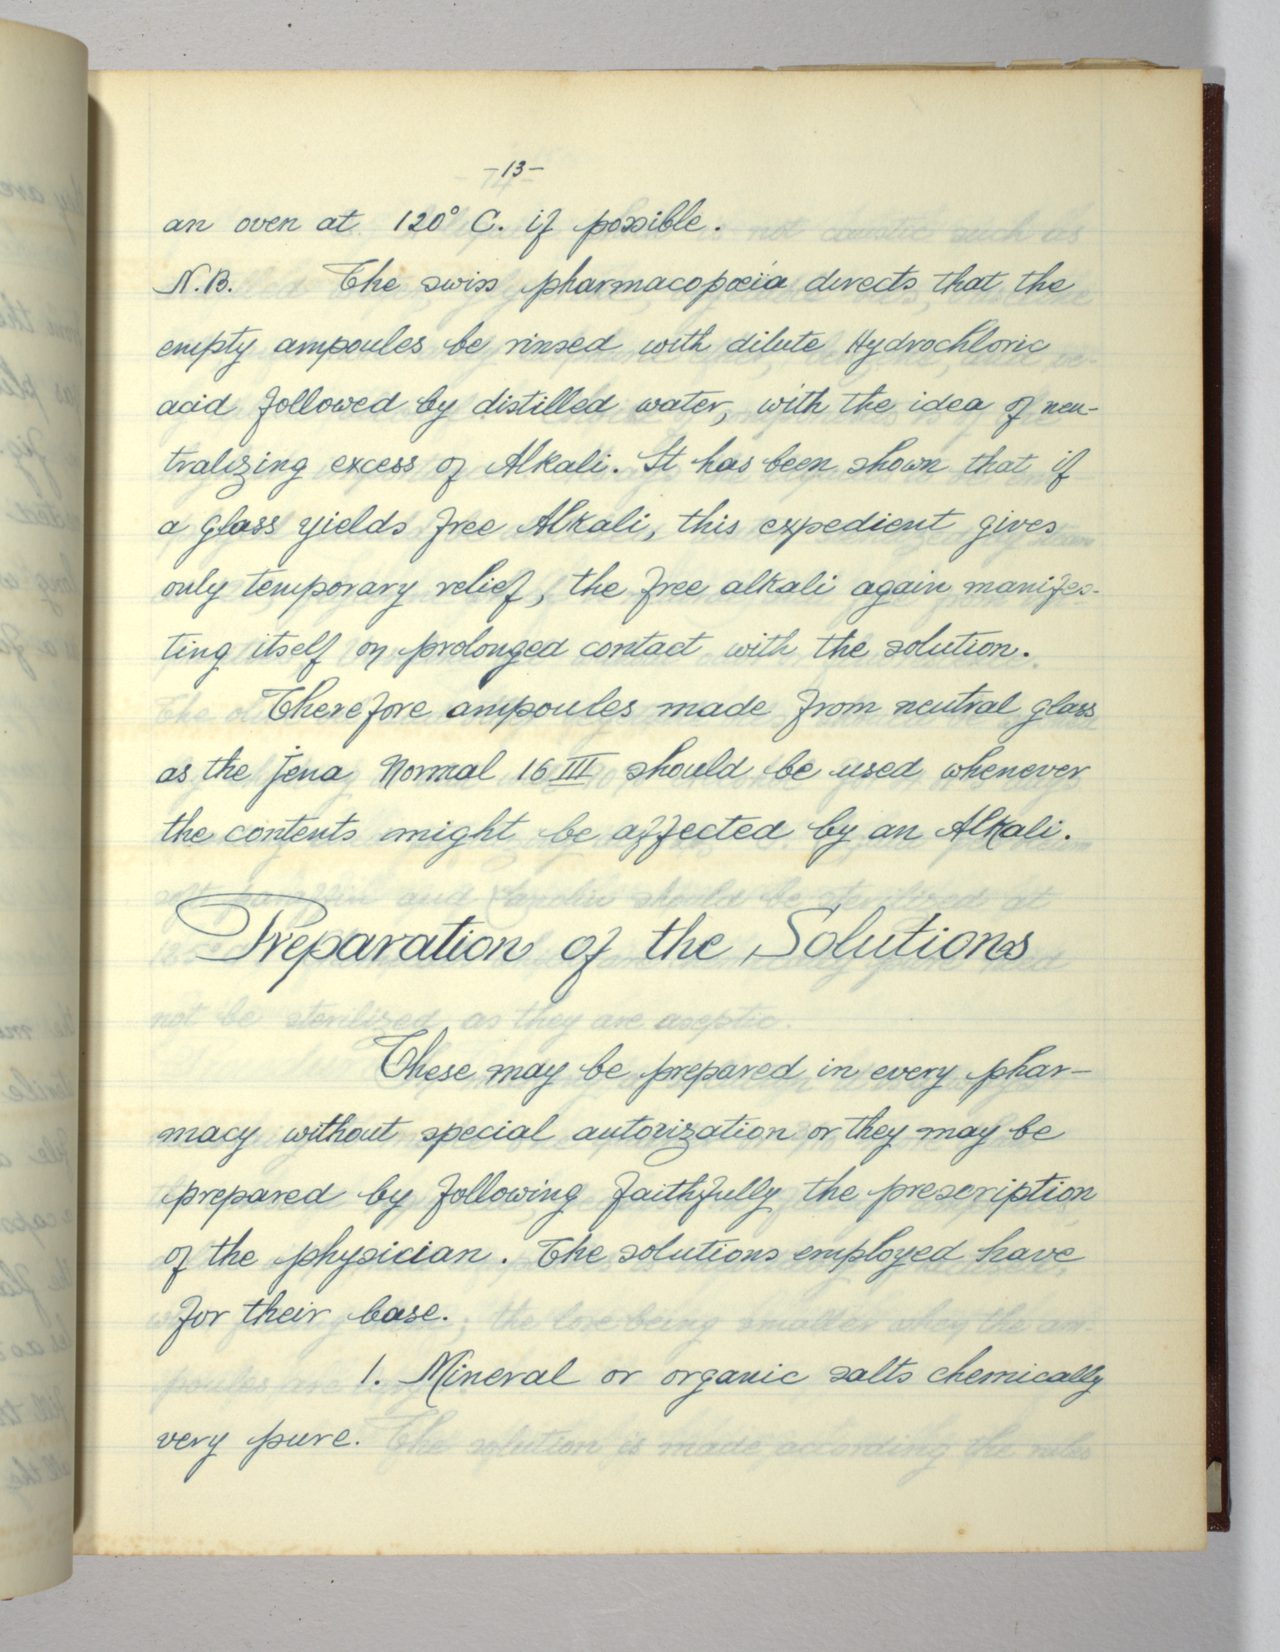 -13-
an oven at 120° C. if possible.
N.B. The swiss pharmacopœia directs that the
empty ampoules be rinsed with dilute Hydrochloric
acid followed by distilled water, with the idea of neu-
tralizing excess of Alkali. It has been shown that if
a glass yields free Alkali, this expedient gives
only temporary relief, the free alkali again manifes-
ting itself on prolonged contact with the solution.
Therefore ampoules made from neutral glass
as the Jena Normal 16 III should be used whenever
the contents might be affected by an Alkali.
Preparation of the Solutions
These may be prepared in every phar-
macy without special autorization or they may be
prepared by following faithfully the prescription
of the physician. The solutions employed have
for their base.
1. Mineral or organic salts chemically
very pure.